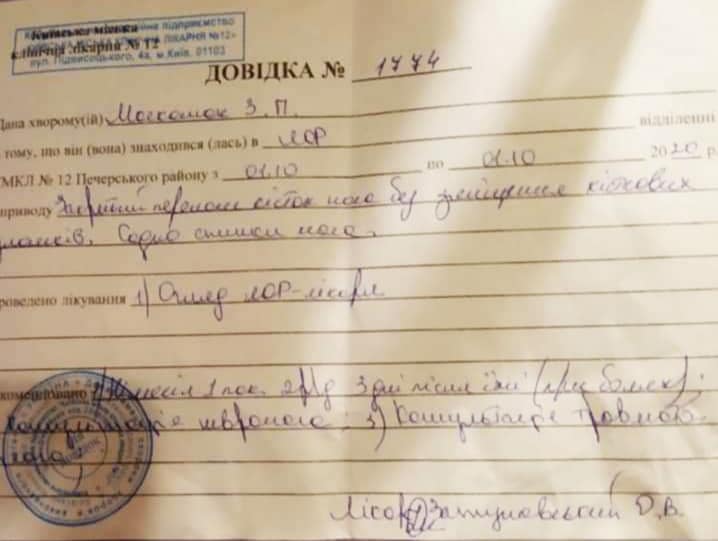 Київська міська
клінічна лікарня № 12
вул. Підвисоцького, 4а, м.Київ, 01103
ДОВІДКА № 1774
Дана хворому(ій) З. П.
тому, що він (вона) знаходився (лась) в ЛОР відділенні
МКЛ № 12 Печерського району з 01.10 по 01.10 2020 р.
приводу Закритий перелом кісток носа без зміщення кісткових
Садно спинки носа.
роведено лікування 1) Огляд ЛОР-лікаря
комендовано 1) Німесил 1 пак. 2 р/д 3 дні після їжі (при болях);
невролога; 3) Консультація травмато-
Лікар Д.В.